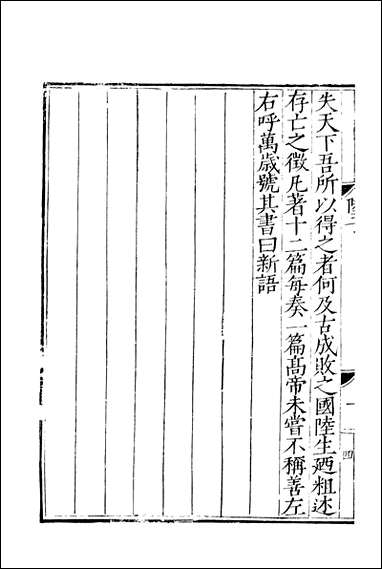 失天下吾所以得之者何及古成敗之國陸生廼粗述
存亡之徵凡著十二篇每奏一篇高帝未嘗不稱善左
右呼萬歲號其書曰新語